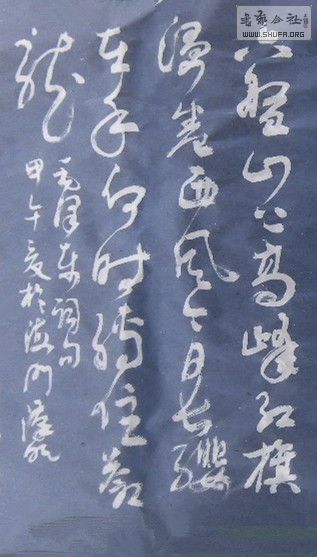 书艺公社
WWW.SHUFA.ORG
六盘山上高峰红旗
漫卷西风今日长缨
在手何时缚住苍
龙
毛泽东词句
甲午夏於海门